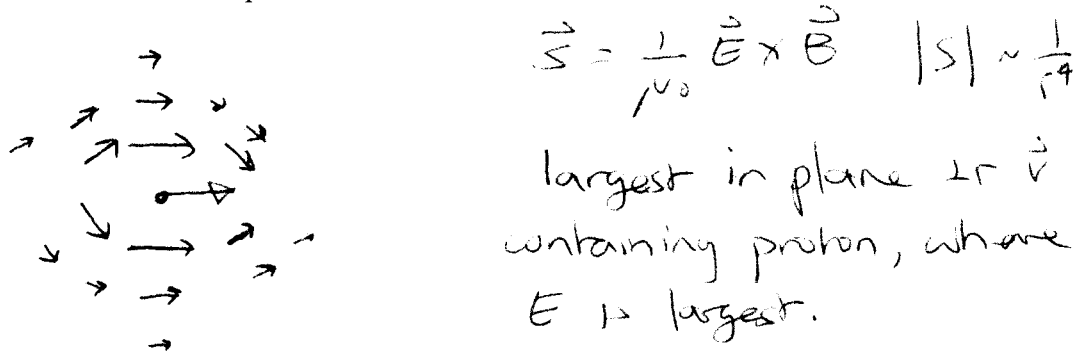 $\vec{S} = \frac{1}{\mu_0} \vec{E} \times \vec{B}$ $|S| \sim \frac{1}{r^4}$
largest in plane ⊥r $\vec{v}$
containing proton, where
E is largest.